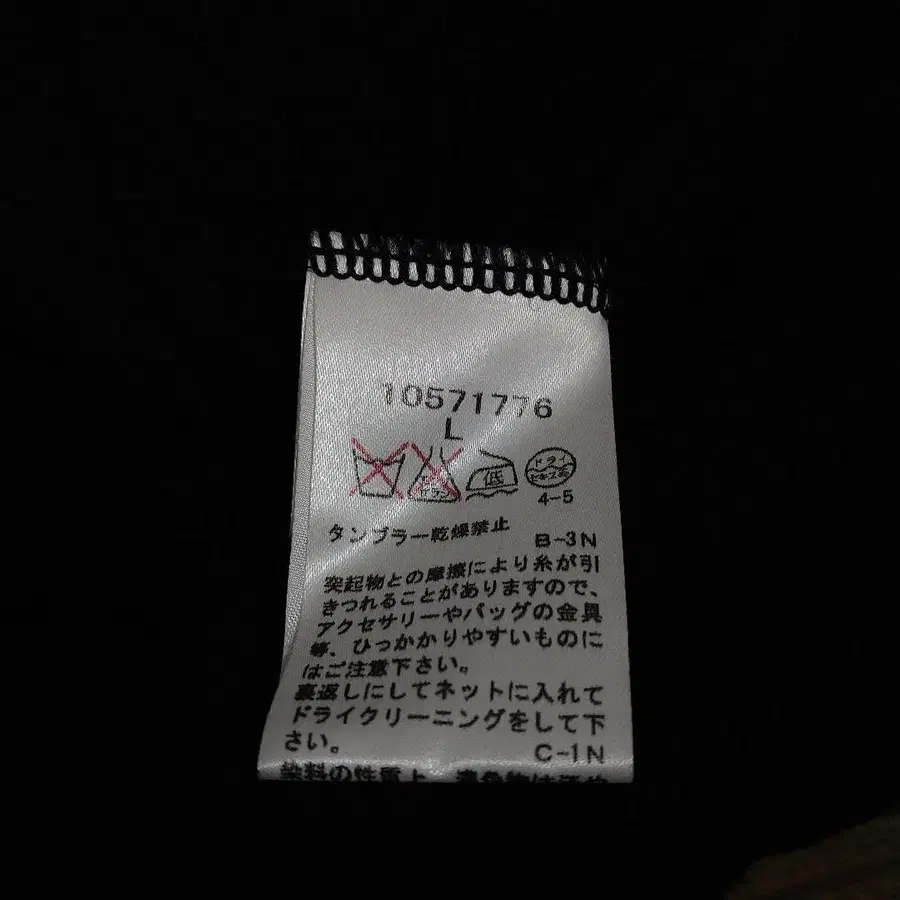 10571776
L
低 ドライ セキユ系
4-5
タンブラー乾燥禁止
B-3N
突起物との摩擦により糸が引
きつれることがありますので、
アクセサリーやバッグの金具
等、ひっかかりやすいものに
はご注意下さい。
裏返しにしてネットに入れて
ドライクリーニングをして下
さい。
C-1N
染料の性質上、濃色物は